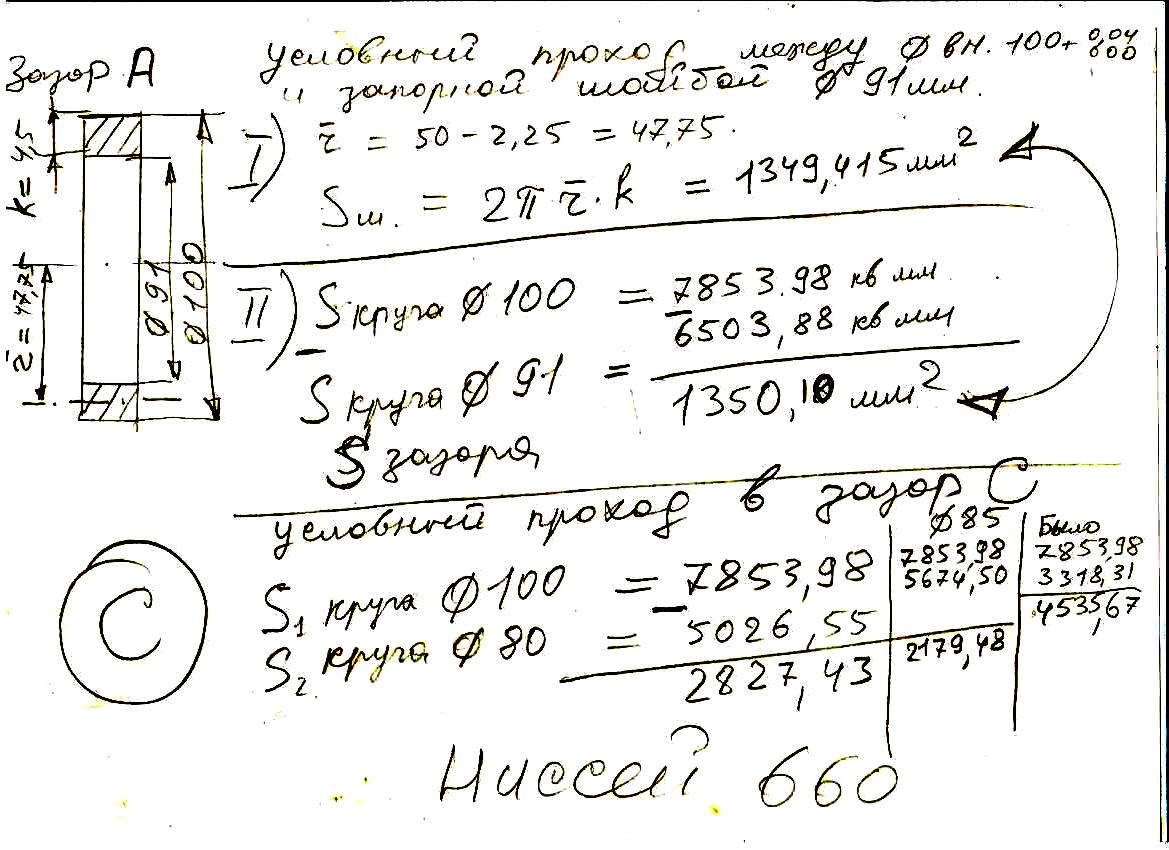 Зазор А
условный проход между ϕ вн. 100+ 0,04 000
и запорной шайбой ϕ 91мм.
k = 4,5
r̄ = 47,75
ϕ 91
ϕ 100
I) r̄ = 50 - 2,25 = 47,75.
Sш. = 2π r̄ · k = 1349,415 мм²
II) S круга ϕ 100 = 7853.98 кв мм
- 6503,88 кв мм
S круга ϕ 91 = 1350,10 мм²
S зазора
условный проход в зазор С
С
S₁ круга ϕ 100 = 7853,98
S₂ круга ϕ 80 = - 5026,55
2827,43
ϕ 85
7853,98
5674,50
2179,48
Было
7853,98
3318,31
4535,67
Ниссей 660